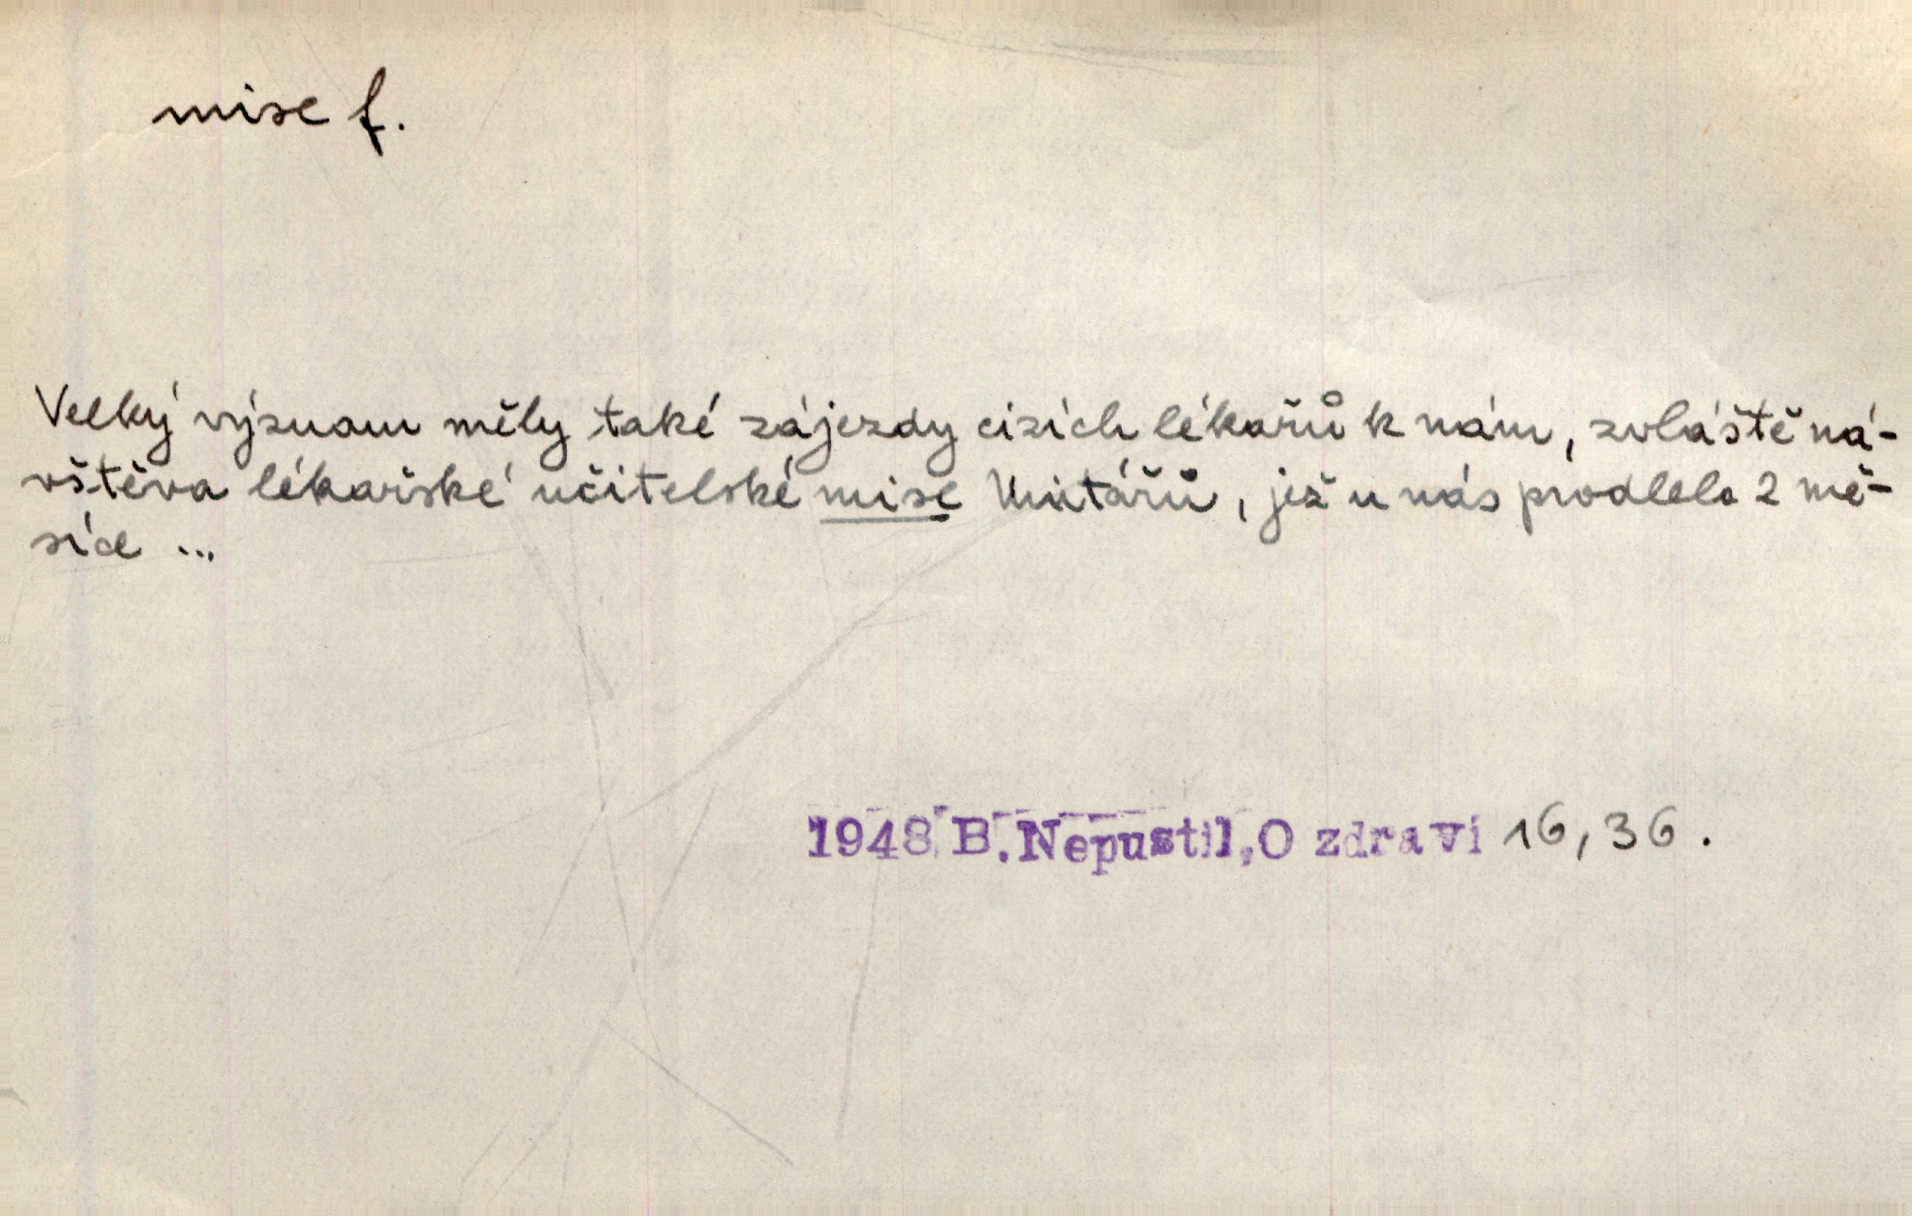 mise f.
Velký význam měly také zájezdy cizích lékařů k nám, zvláště ná-
vštěva lékařské učitelské mise Unitářů, jež u nás prodlela 2 mě-
síce ...
1948 B. Nepustil, O zdraví 16, 36.